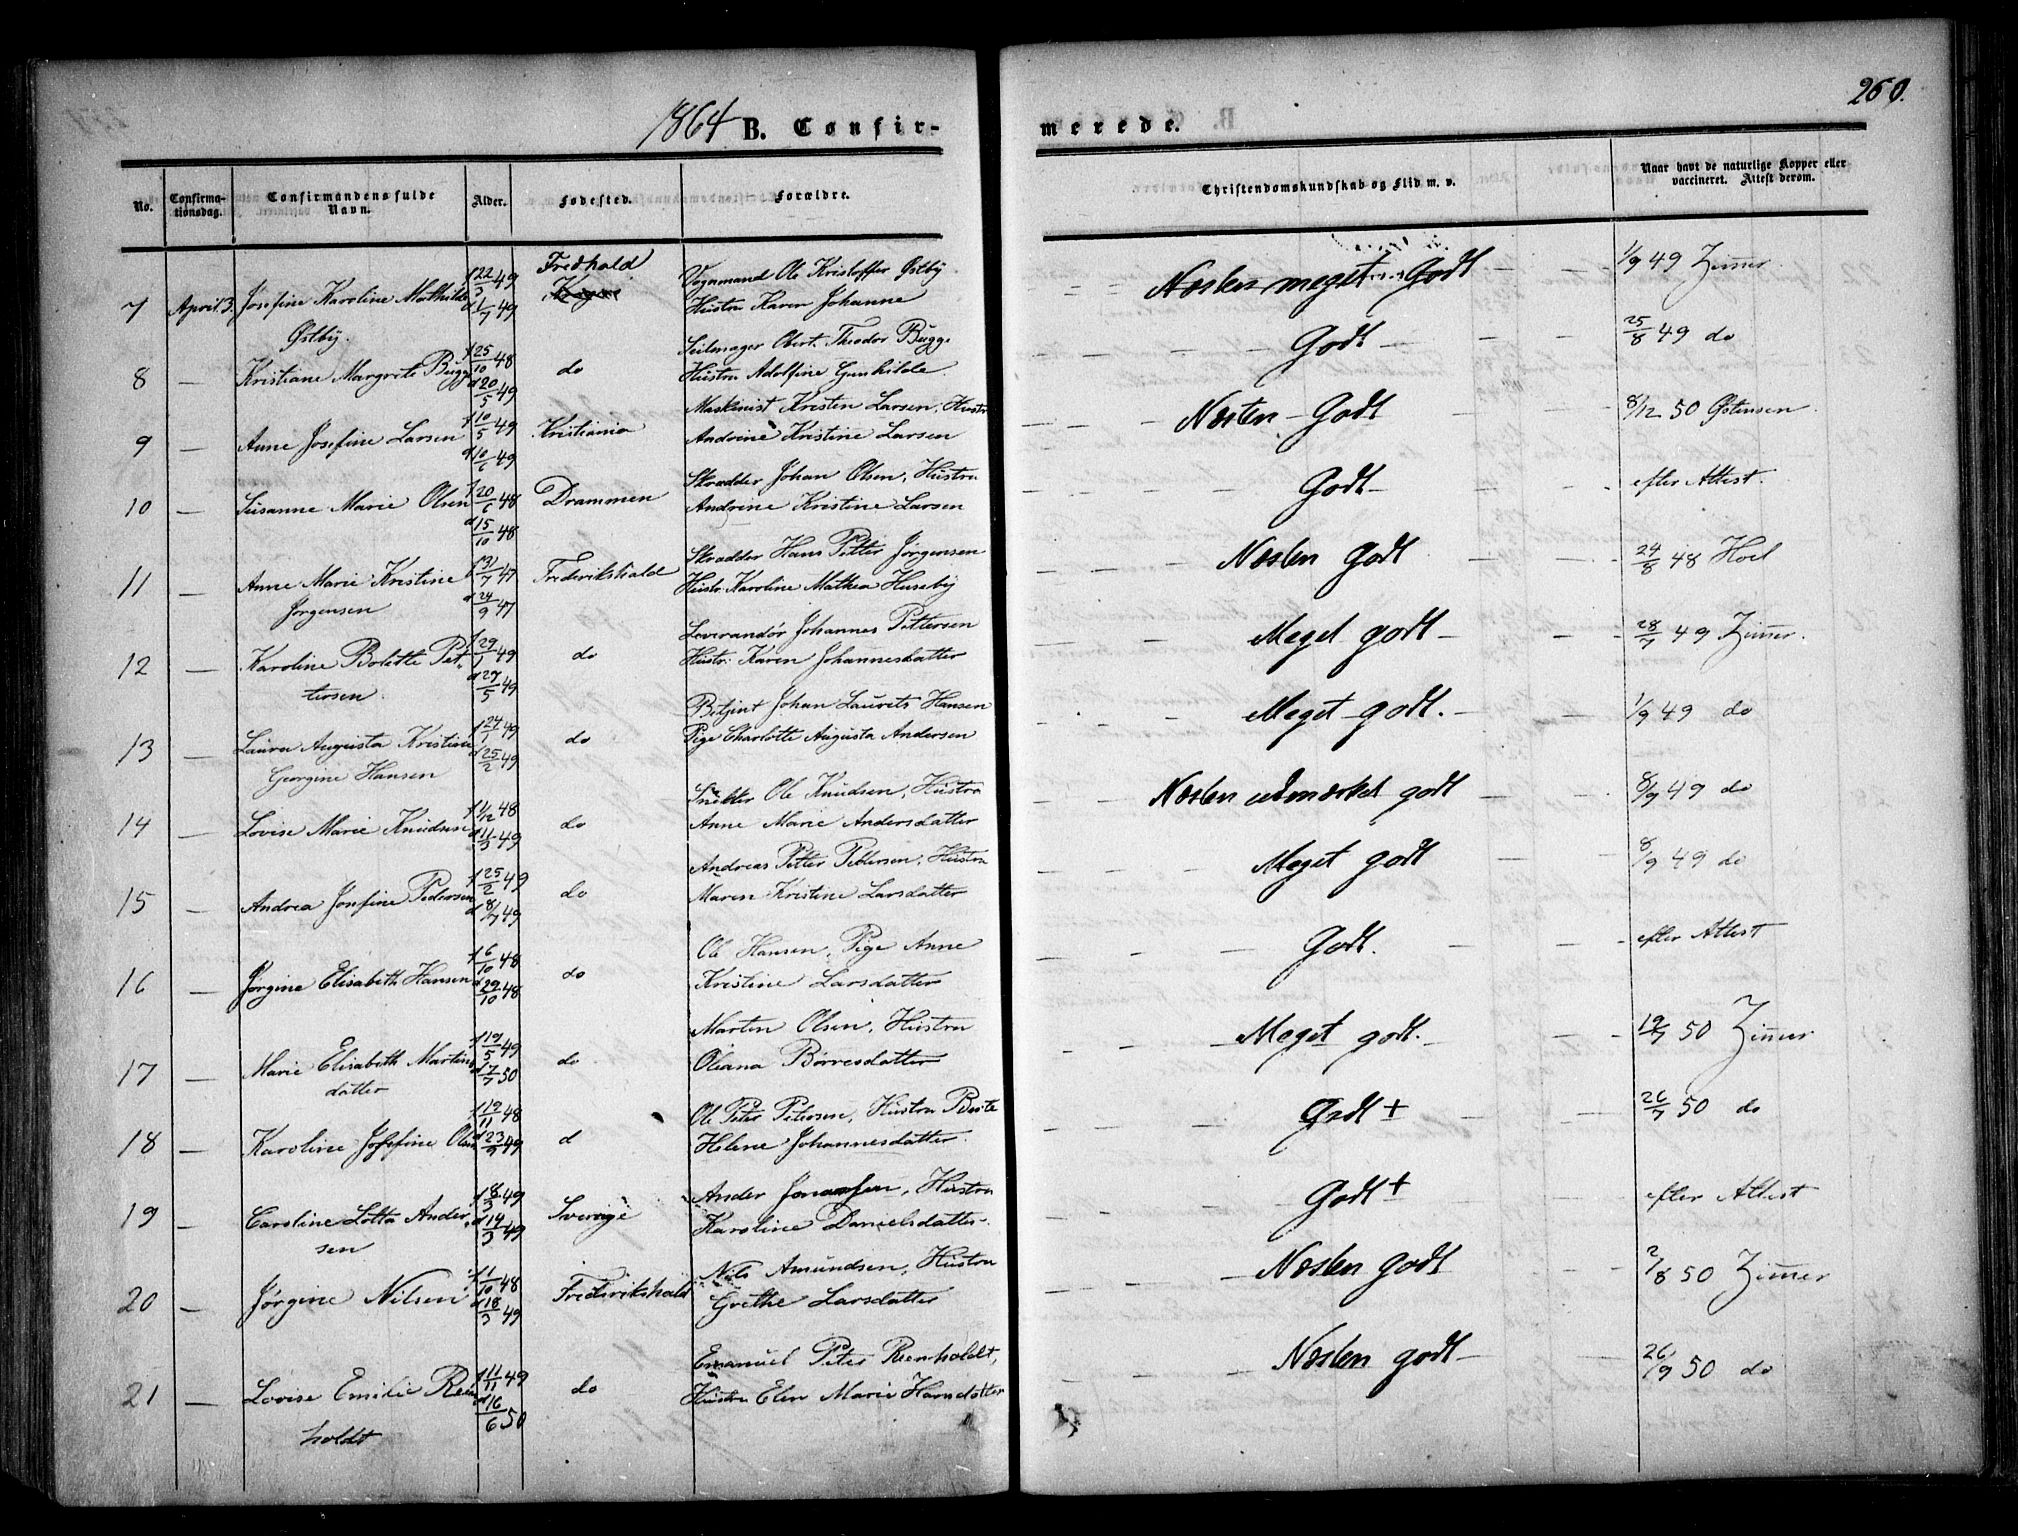 260.
1864 B. Confir-
merede.
No.
Confirma-
tionsdag.
Confirmandens fulde
Navn.
Alder.
Fødested.
Forældre.
Christendomskundskab og Flid m. v.
Naar havt de naturlige Kopper eller
vaccineret. Attest derom.
7 April 3. Josefine Karoline Mathilde
Østby.
f 22/5 49
d 1/7 49
Fredhald
Vognmand Ole Kristoffer Østby
Hustru Karen Johanne
Næsten meget Godt
1/9 49 Zimer
8 — Kristiane Margrete Bugge
f 25/10 48
d 20/5 49
do
Seilmager Obert. Theodor Bugge
Hustru Adolfine Gunhilde
Godt
25/8 49 do
9 — Anne Josefine Larsen
f 10/5 49
d 10/6 49
Kristiania
Maskinist Kristen Larsen, Hustr
Andrine Kristine Larsen
Næsten Godt
8/12 50 Østensen
10 — Susanne Marie Olsen
f 20/6 48
d 15/10 48
Drammen
Skrædder Johan Olsen, Hustru
Andrine Kristine Larsen
Godt
efter Attest.
11 — Anne Marie Kristine
Jørgensen
f 31/7 47
d 24/9 47
Frederikshald
Skrædder Hans Petter Jørgensen
Hustr. Karoline Mathea Huseby
Næsten Godt
24/8 48 Hoel
12 — Karoline Bolette Pet-
tersen
f 29/1 49
d 27/5 49
do
Leverandør Johannes Pettersen
Hustr. Karen Johannesdatter
Meget godt
28/7 49 Zimer.
13 — Laura Augusta Kristine
Georgine Hansen
f 24/1 49
d 25/2 49
do
Betjent Johan Laurits Hansen
Pige Charlotte Augusta Andersen
Meget godt.
1/9 49 do
14 — Lovise Marie Knudsen
f 4/12 48
d 11/3 49
do
Snekker Ole Knudsen, Hustru
Anne Marie Andersdatter
Næsten udmærket godt
8/9 49 do
15 — Andrea Josefine Pedersen
f 25/2 49
d 8/7 49
do
Andreas Petter Pettersen, Hustru
Maren Kristine Larsdatter
Meget godt
8/9 49 do
16 — Jørgine Elisabeth Hansen
f 6/10 48
d 29/10 48
do
Ole Hansen, Pige Anne
Kristine Larsdatter
Godt.
efter Attest
17 — Marie Elisabeth Martins
datter
f 19/5 49
d 7/7 50
do
Martin Olsen, Hustru
Oliana Børresdatter
Meget godt.
19/7 50 Zimer
18 — Karoline Josefine Olsen
f 19/11 48
d 23/9 49
d
Ole Peter Petersen, Hustru
Helene Johannesdatter
Godt +
26/7 50 do
19 — Caroline Lotta Ander-
sen
f 8/3 49
d 14/3 49
Sverige
Ander Hustru
Karoline Danielsdatter
Godt +
efter Attest
20 — Jørgine Nilsen
f 1/10 48
d 18/3 49
Frederikshald
Nils Amundsen, Hustru
Grethe Larsdatter
Næsten godt
2/8 50 Zimer
21 — Lovise Emilie Rein
holdt
f 11/11 49
d 16/6 50
do
Emanuel Peter Reenholdt,
Hustru Elen Marie Hansdatter
Næsten godt
26/9 50 do